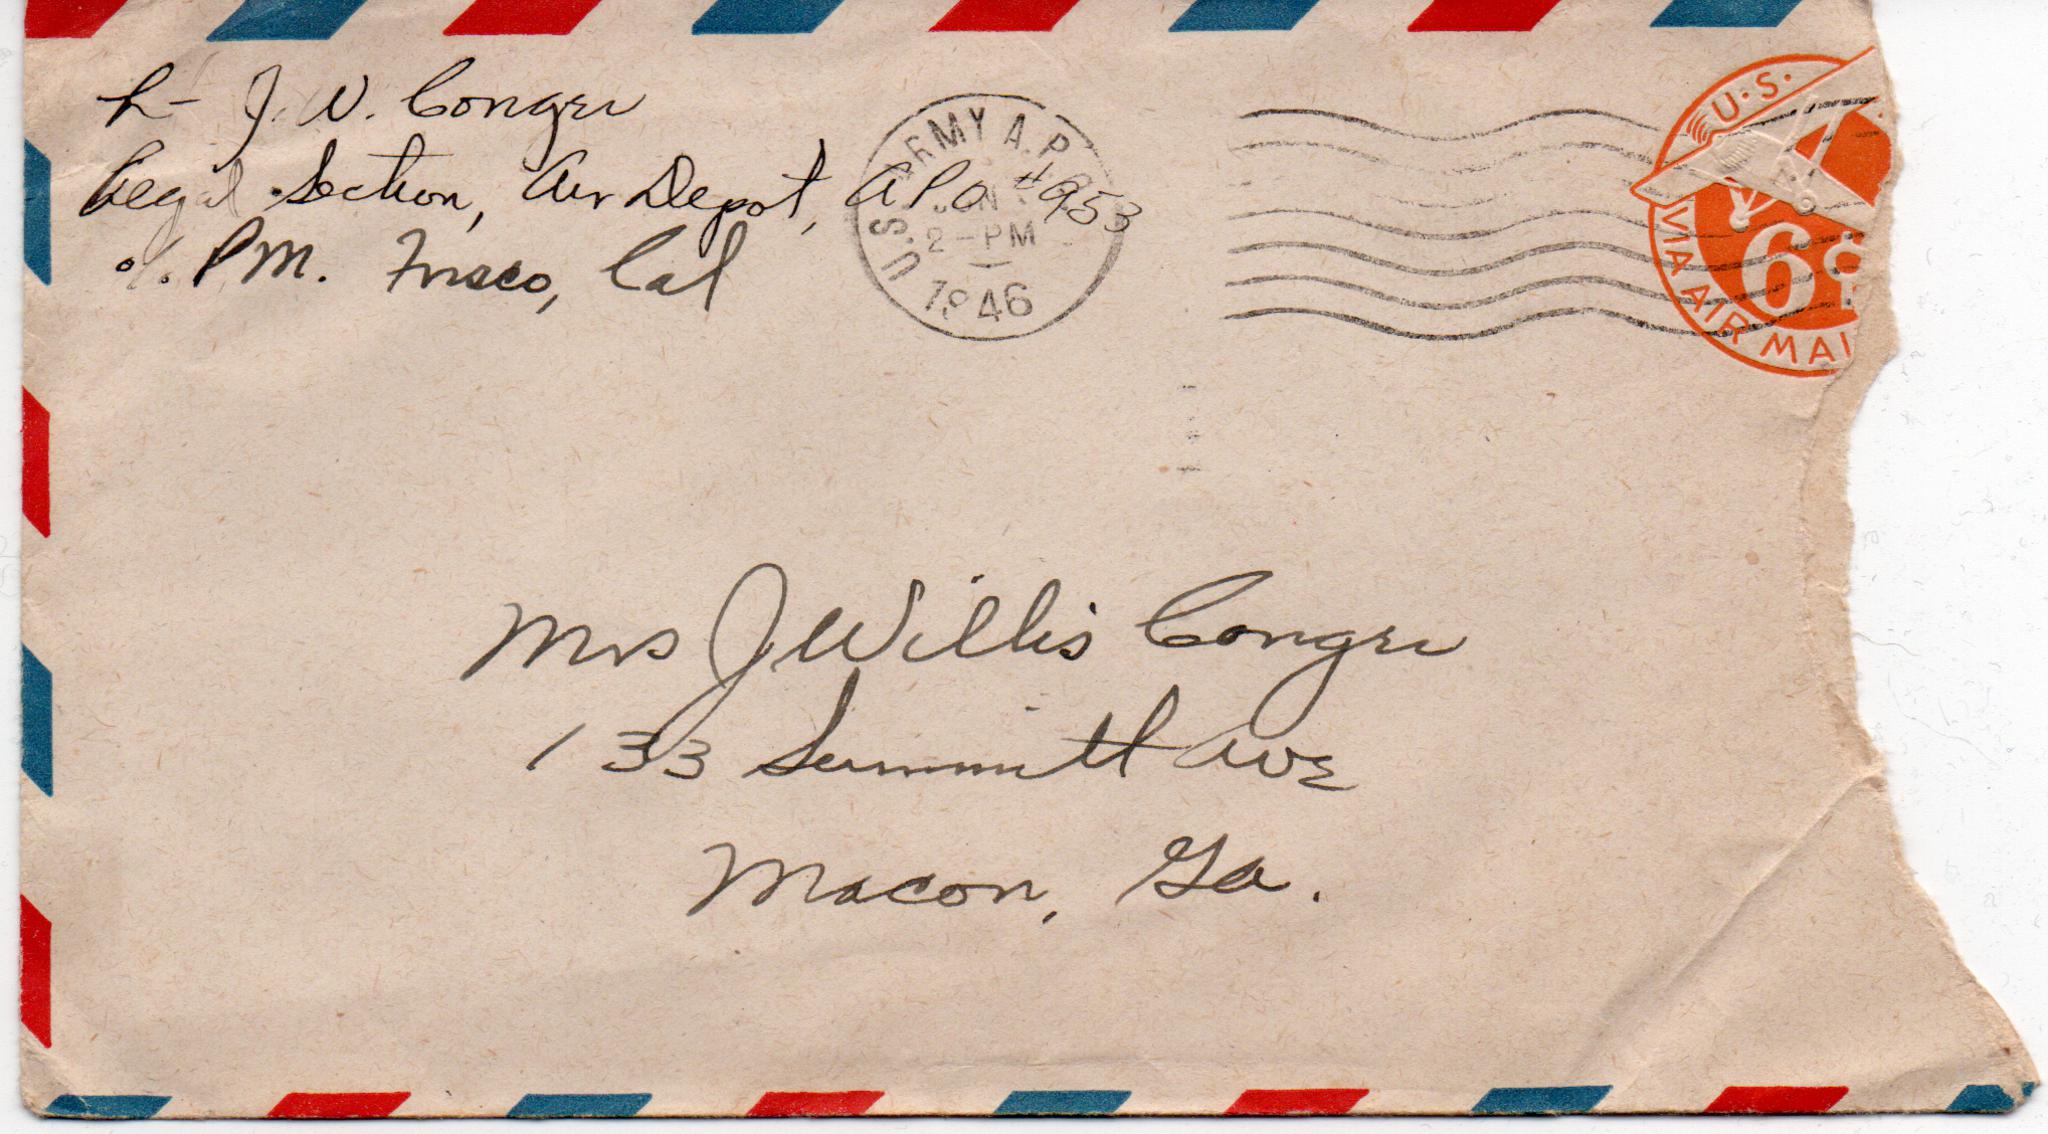 Lt J. W. Conger
Legal Section, Air Depot, APO #953
% PM. Frisco, Cal
U.S. ARMY A.P.O.
JUN
2-PM
1946
U.S.
6¢
VIA AIR MAI
Mrs J Willis Conger
133 Summitt Ave
Macon, Ga.